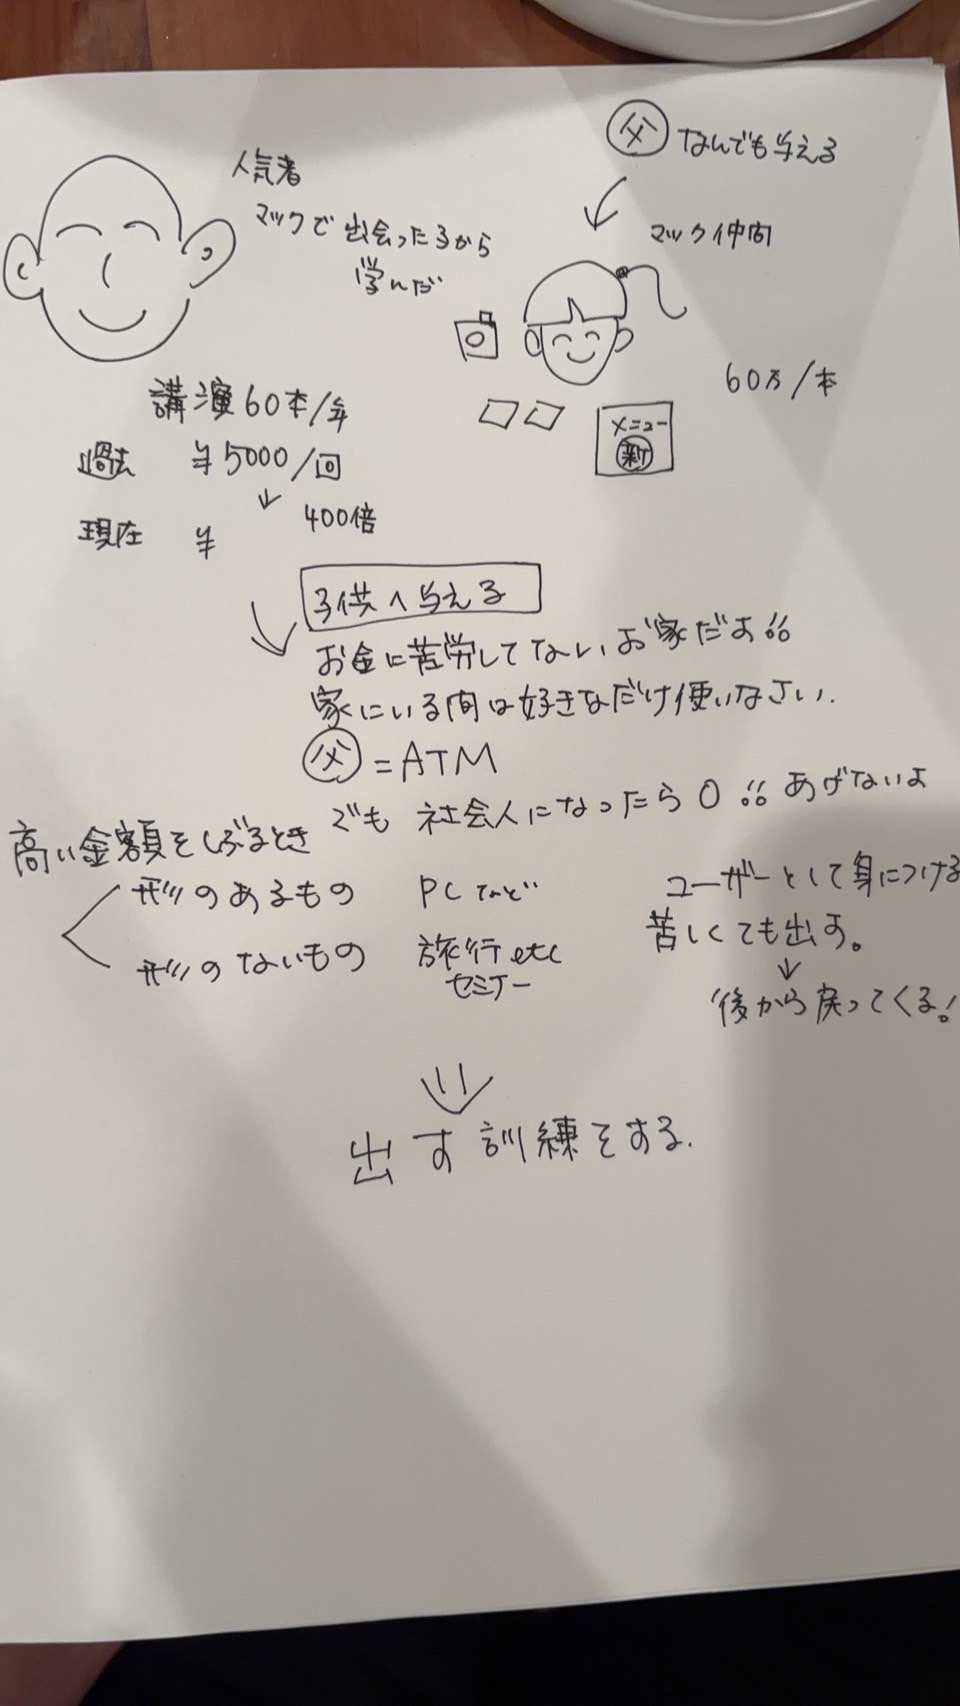 人気者
マックで出会った子から
学んだ
父 なんでも与える
マック仲間
60万/本
メニュー
新
講演60本/年
過去 ¥5000/回
400倍
現在 ¥
子供へ与える
お金に苦労してない、お家だよ!!
家にいる間は好きなだけ使いなさい.
父=ATM
でも 社会人になったら0!! あげないよ
高い金額をしぶるとき
形のあるもの PCなど
形のないもの 旅行etc
セミナー
ユーザーとして身につける
苦しくても出す。
後から戻ってくる!
出す訓練をする.